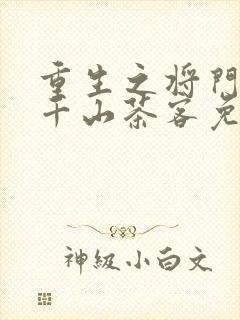 重生之将門
千山茶客免
神級小白文